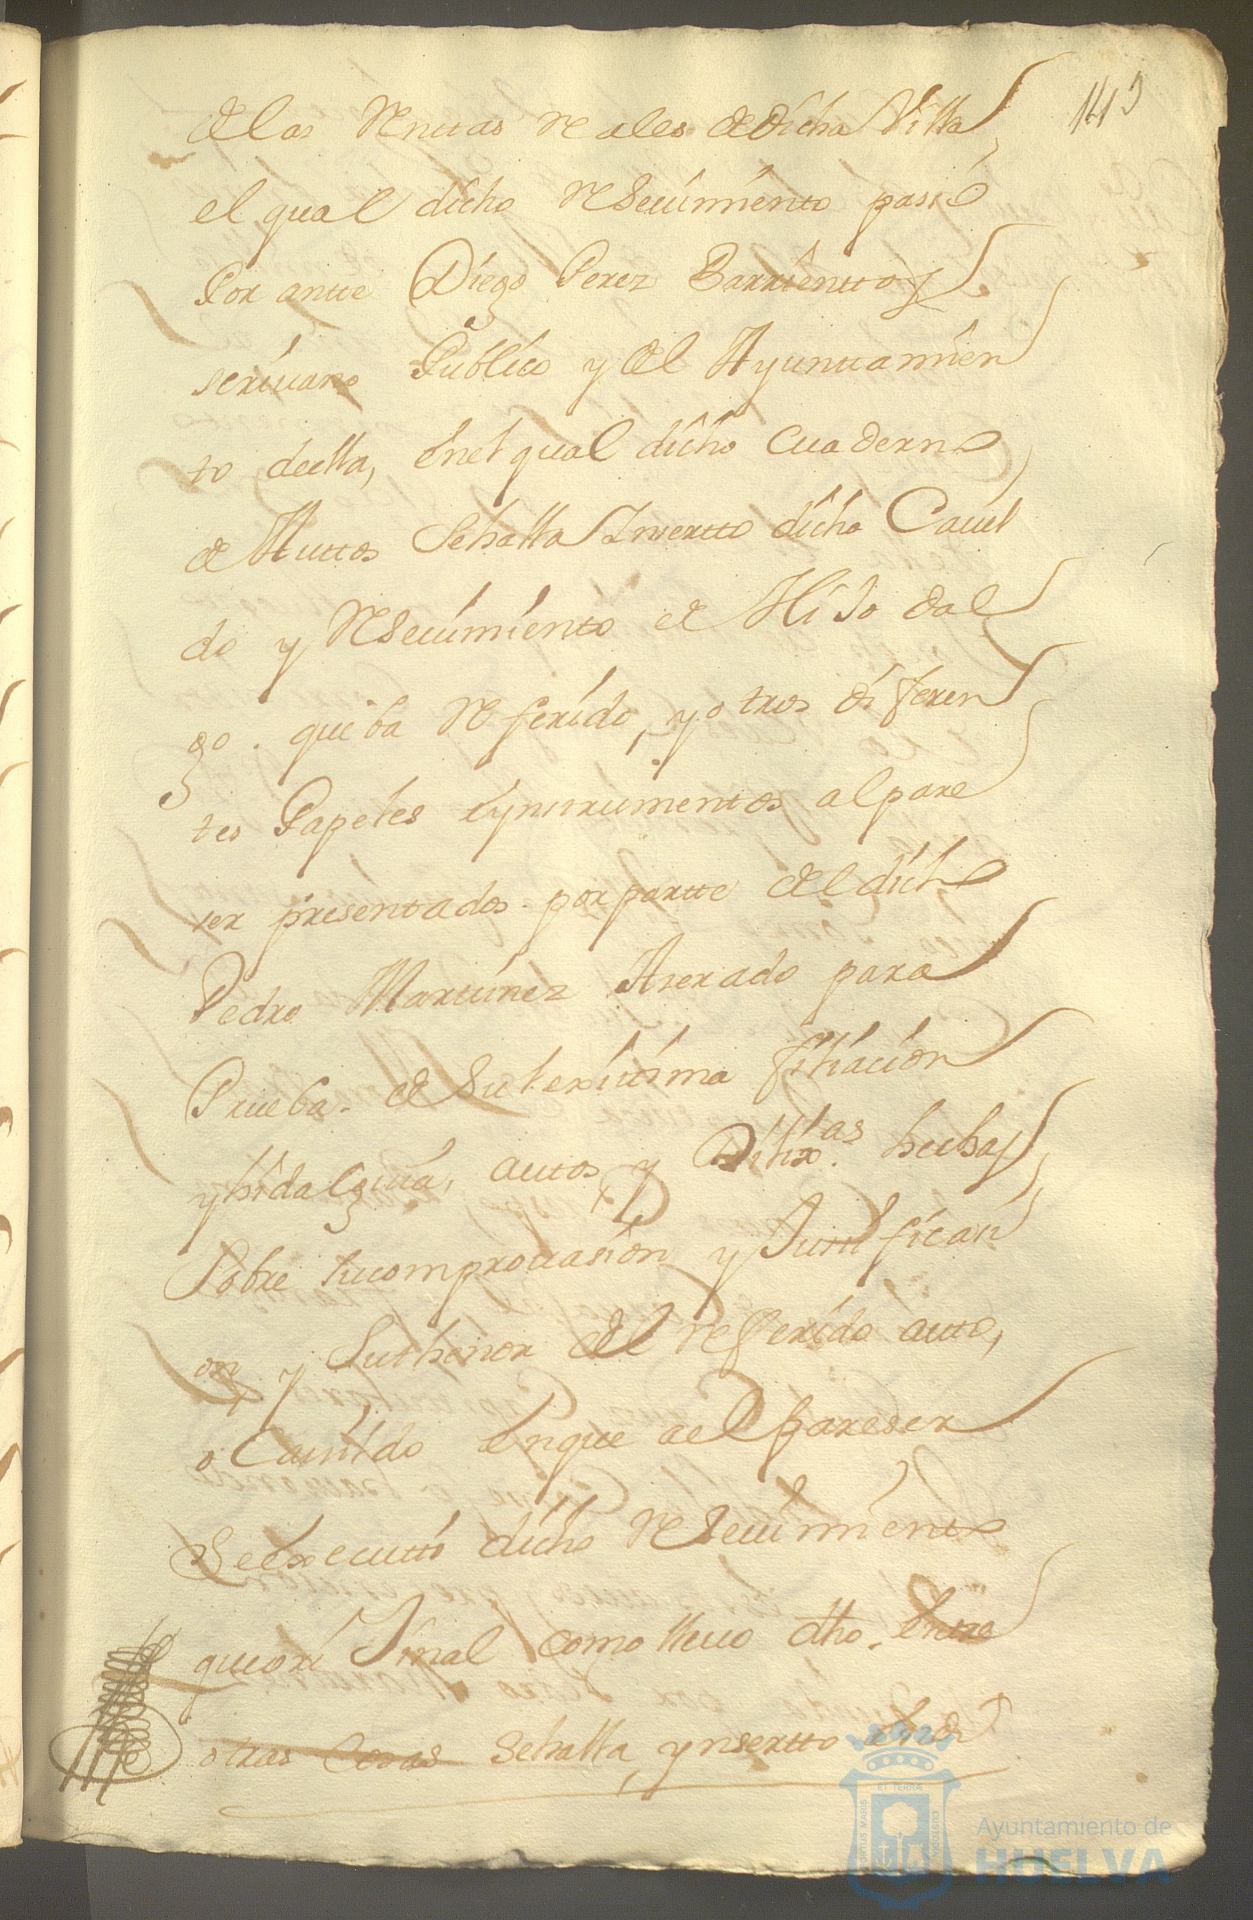 145
de las Renttas reales de dicha Villa
el qual dicho Resevimiento passó
Por antte Diego Perez Barrienttos
scrivano Publico y del Ayuntamien
to de ella, en el qual dicho cuaderno
de Auttos se halla Insertto dicho Cavil
do y Resevimiento de Hijo dal
go que ba Referido, y otros diferen
tes Papeles e ynstrumentos al pare
ser presentados por partte del dicho
Pedro Martinez Aserado para
Prueba de su lexittima filiacion
y hidalguia, autos y Dilix.as hechas
Sobre su comprovasion y Justificasi
on y Su thenor del referido autto,
o Cavildo en que al pareser
Se executtó dicho Resevimiento
que orixinal como llevo dho. entre
otras cosas se halla ynsertto en di
VIRTUS MARIS ET TERRAE
Ayuntamiento de
HUELVA